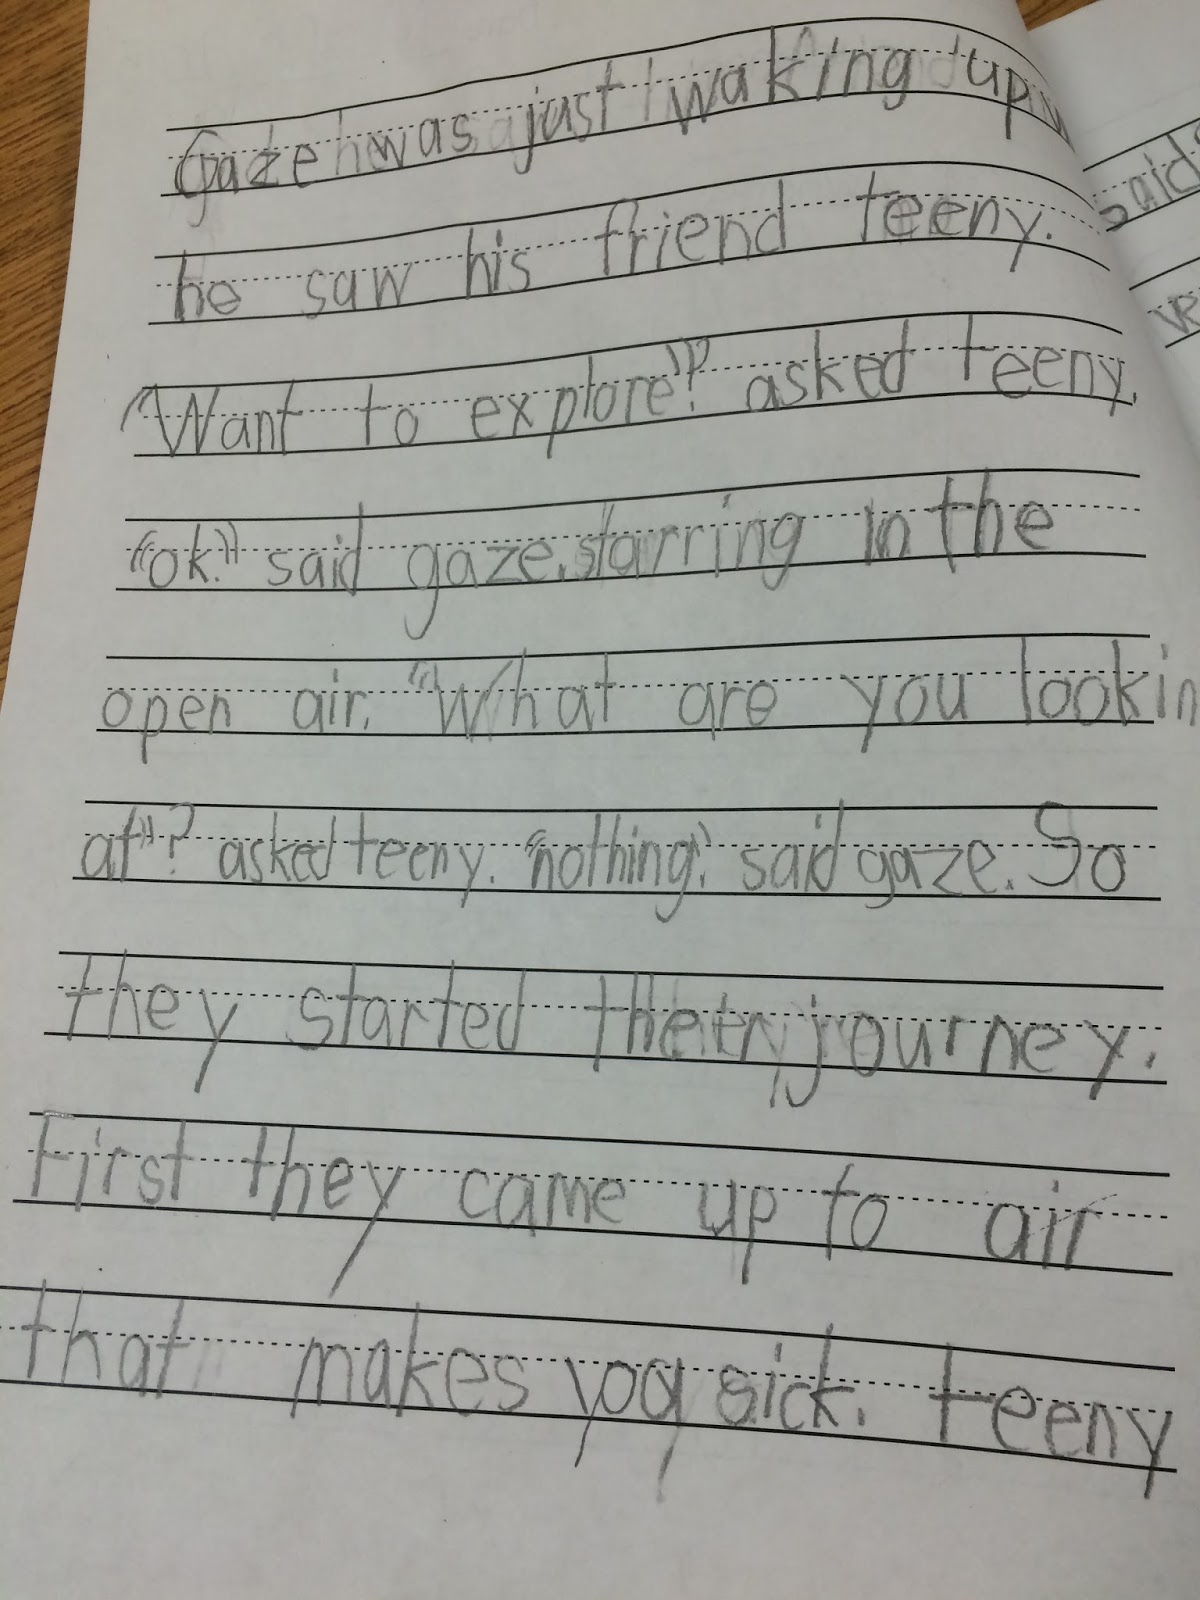 Gaze was just waking up
he saw his friend teeny.
"Want to explore"? asked teeny.
"ok." said gaze. starring in the
open air. "What are you lookin
at"? asked teeny. "nothing." said gaze. So
they started their journey.
First they came up to air
that makes you sick. teeny
said